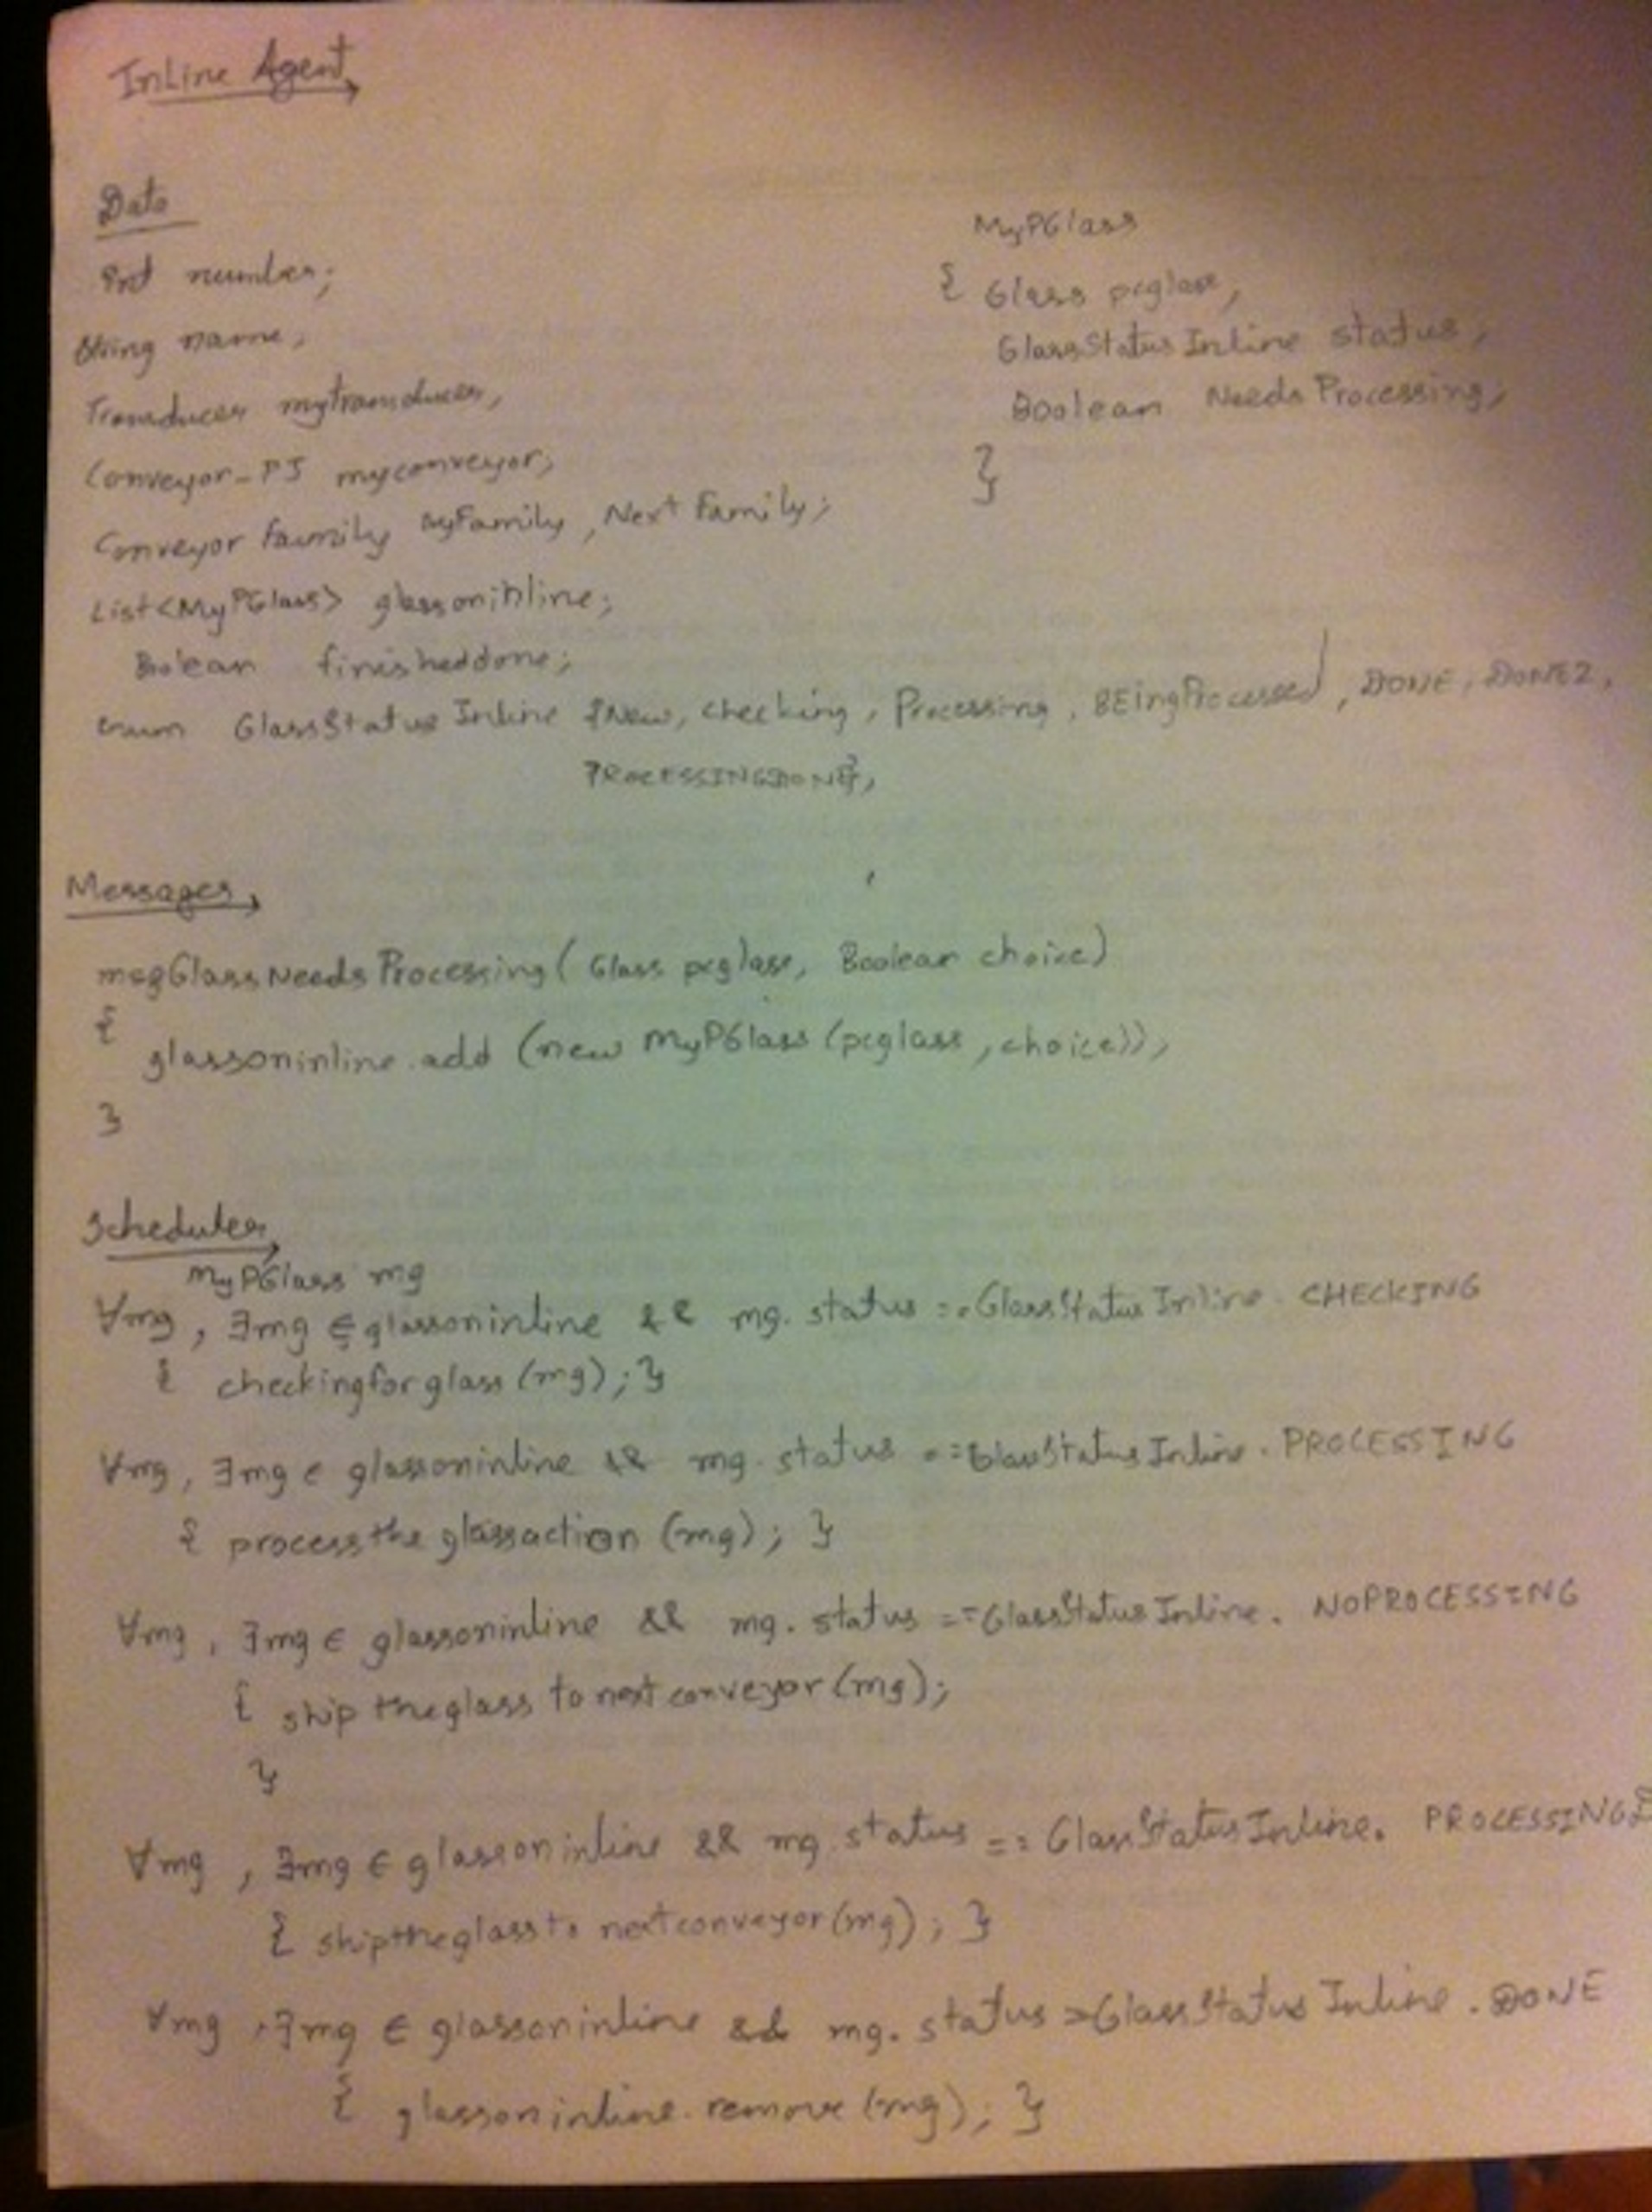 InLine Agent
Data
Int number;
String name;
Transducer mytransducer;
Conveyor-PJ myconveyor;
Conveyor family MyFamily, Next Family;
List<MyPGlass> glassoninline;
Boolean finisheddone;
enum GlassStatus Inline {New, checking, Processing, BEingProcessed, DONE, DONE2,
PROCESSINGDONE};
MyPGlass
{ Glass pcglass;
GlassStatus Inline status;
Boolean Needs Processing;
}
Messages
msgGlassNeeds Processing( Glass pcglass, Boolean choice)
{
glassoninline.add (new MyPGlass (pcglass, choice));
}
Scheduler
MyPGlass mg
∀mg, ∃mg ∈ glassoninline && mg. status == GlassStatus Inline. CHECKING
{ checkingforglass (mg); }
∀mg, ∃mg ∈ glassoninline && mg. status == GlassStatus Inline. PROCESSING
{ processthe glassaction (mg); }
∀mg, ∃mg ∈ glassoninline && mg. status == GlassStatus Inline. NOPROCESSING
{ ship theglass to next conveyor (mg);
}
∀mg, ∃mg ∈ glassoninline && mg. status == GlassStatus Inline. PROCESSINGD
{ shiptheglassto nextconveyor (mg); }
∀mg, ∃mg ∈ glassoninline && mg. status = GlassStatus Inline. DONE
{ glassoninline. remove (mg); }